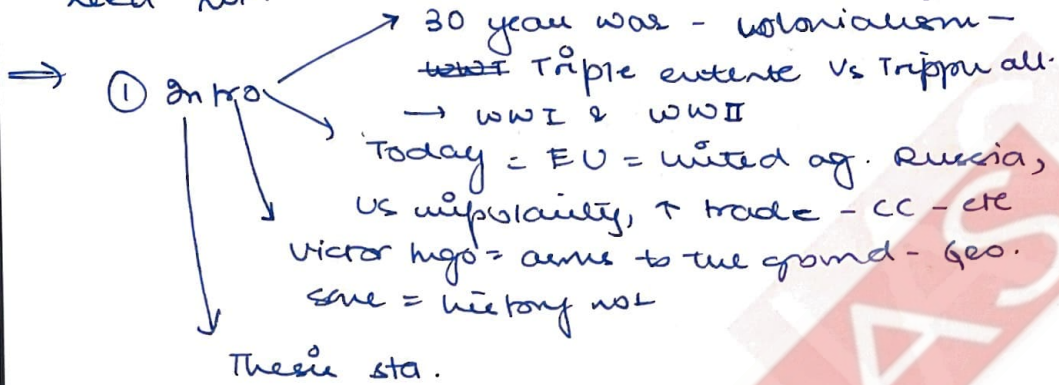 → 30 year war - colonialism -
⇒ ① Intro Triple entente Vs Tripple all.
→ WWI & WWII
Today = EU = united ag. Russia,
US unipolarity, ↑ trade - CC - etc
Victor hugo = arms to the ground - Geo.
same = history not
Thesis sta.